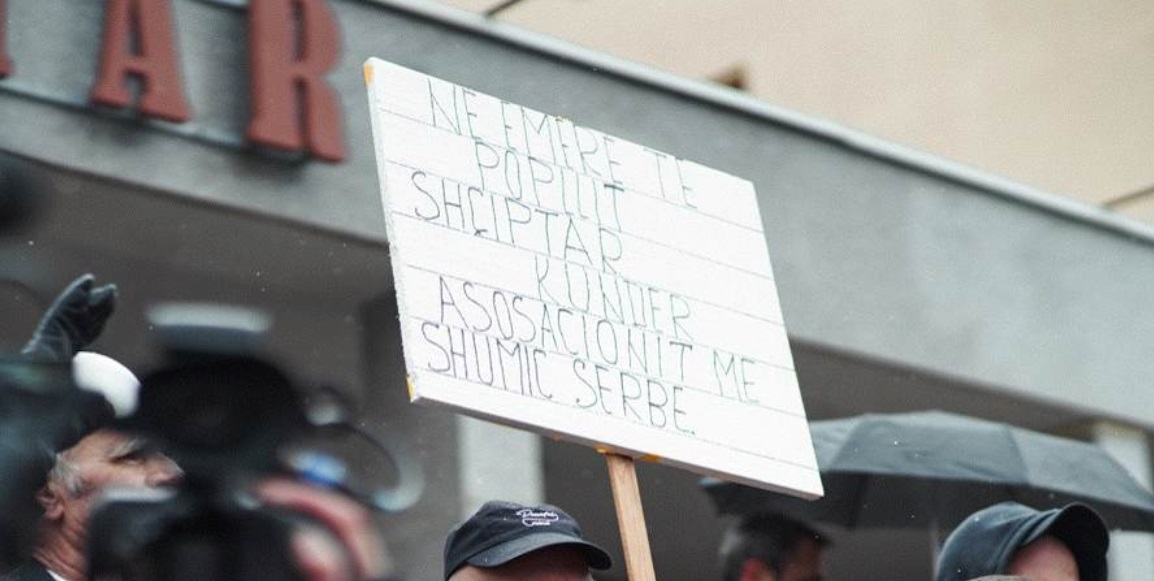 AR
NE EMERE TE
POPILIT
SHÇIPTAR
KUNDER
ASOSACIONIT ME
SHUMIC SERBE